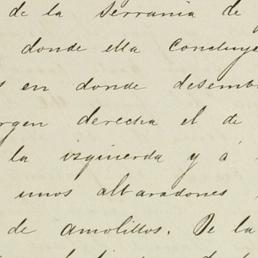 de la serrania de
donde ella concluye
en donde desemb
rgen derecha el de
la izquierda y á
unos albaradones
de amolillos. De la